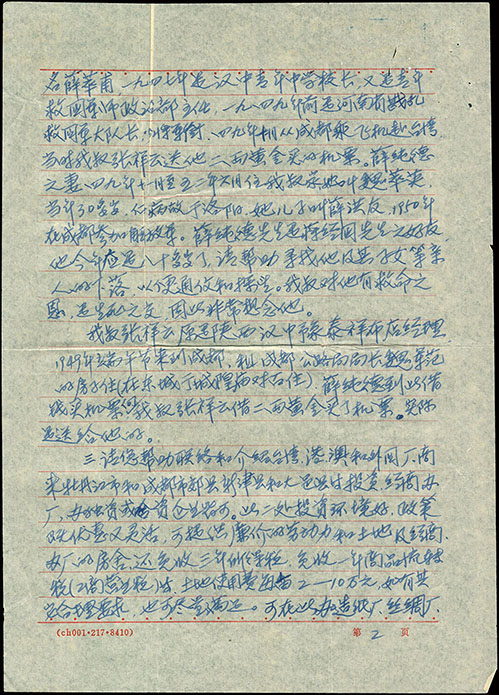 名薛萃甫 一九四七年是汉中青年中学校长,又是青年
救国军师政治部主任,一九四九年前是河南省
救国军大队长,少将军衔,四九年 月从成都乘飞机赴台湾
当时我叔张祥云送他二两黄金买的机票。薛纯德
之妻四九年十月至五二年六月住我叔家她叫魏萃英,
当年30多岁,后病故于洛阳,她儿子叫薛洪友,1950年
在成都参加解放军。薛纯德先生是蒋经国先生之好友
他今年应是八十多岁了,请帮助寻找他及其子女等亲
人的下落,以便通信和探望。我叔对他有救命之
恩,是生死之交,因此非常想念他。
我叔张祥云原是陕西汉中豫泰祥布店经理
1949年端午节来到成都,租成都公路局局长魏军范
的房子住(在东城丁城隍庙对面住)薛纯德到此借
钱买机票时我叔张祥云借二两黄金买了机票。实际
是送给他的。
三 请您帮助联络和介绍台湾,港澳和外国厂商
来牡丹江市和成都市郫县新津县和大邑县去投资,经商办
厂,办独资或合资企业皆可。此二处投资环境好,政策
既优惠又灵活,可提供廉价的劳动力和土地及经商
办厂的房舍,还免收三年所得税,免收一年商品流转
税(工商营业税)等,土地使用费每亩2—10万元,如有其
它合理要求,也可尽量满足。可在此办造纸厂丝绸厂.
(ch001·217·8410)
第 2 页